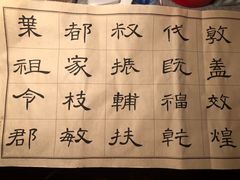 敦盖效煌
伐既福乾
叔振輔扶
都家枝敏
葉祖令郡